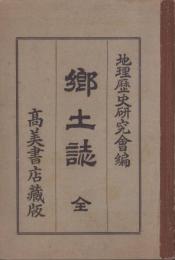 地理歷史研究會編
鄉土誌 全
高美書店藏版